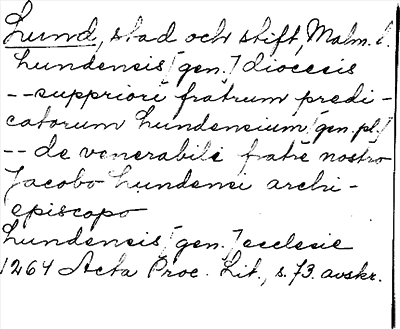 Lund, stad och stift, Malm. l.
Lundensis [gen.] diocesis
--suppriori fratrum predi-
catorum Lundensium [gen. pl.]
-- de venerabili fratre nostro
Jacobo Lundensi archi-
episcopo
Lundensis [gen.] ecclesie
1264 Acta Proc. Lit., s. 73. avskr.